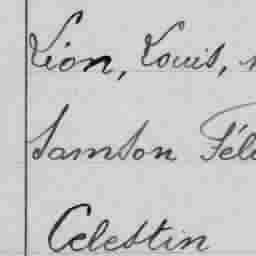 Léon, Louis,
Samson Fél
Celestin